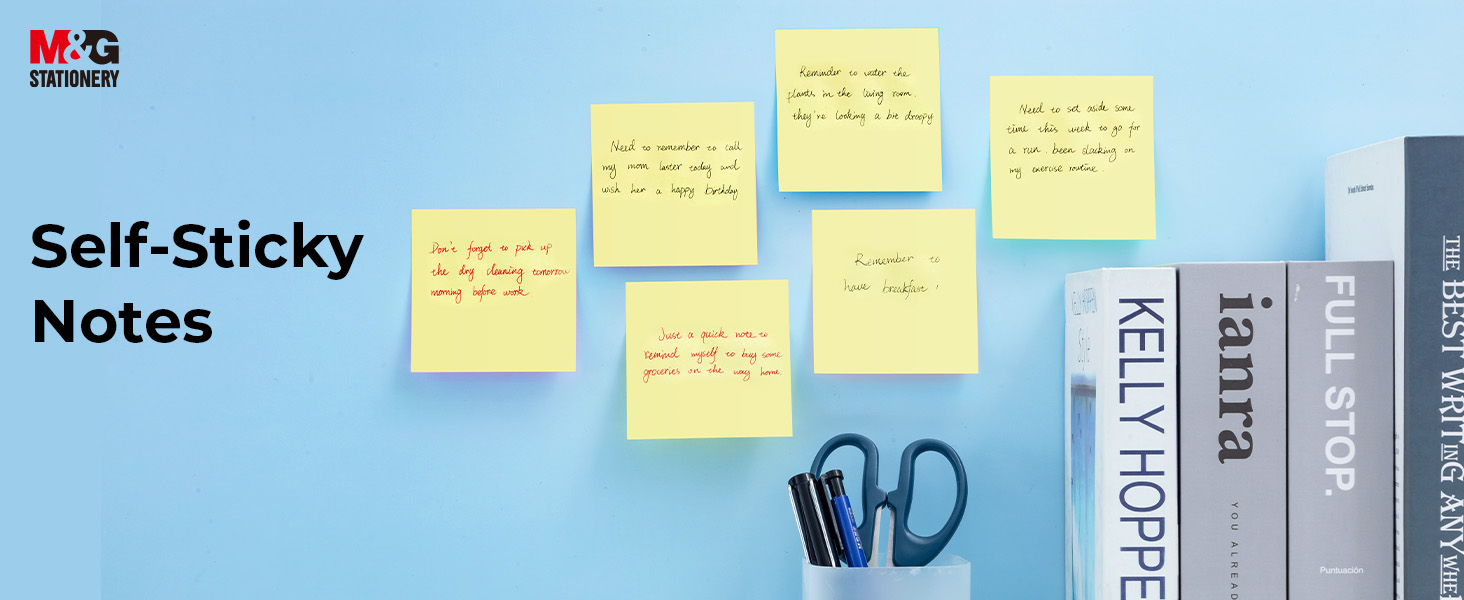 M&G
STATIONERY
Self-Sticky
Notes
Don't forget to pick up
the dry cleaning tomorrow
morning before work
Need to remember to call
my mom laster today and
wish her a happy birthday
Just a quick note to
remind myself to buy some
groceries on the way home.
Reminder to water the
plants in the living room.
they're looking a bit droopy
Remember to
have breakfast!
Need to set aside some
time this week to go for
a run. been slacking on
my exercise routine.
KELLY HOPPEN
Style
KELLY HOPPE
ianra
YOU ALREAD
FULL STOP.
Puntuación
THE BEST WRITING ANYWHE